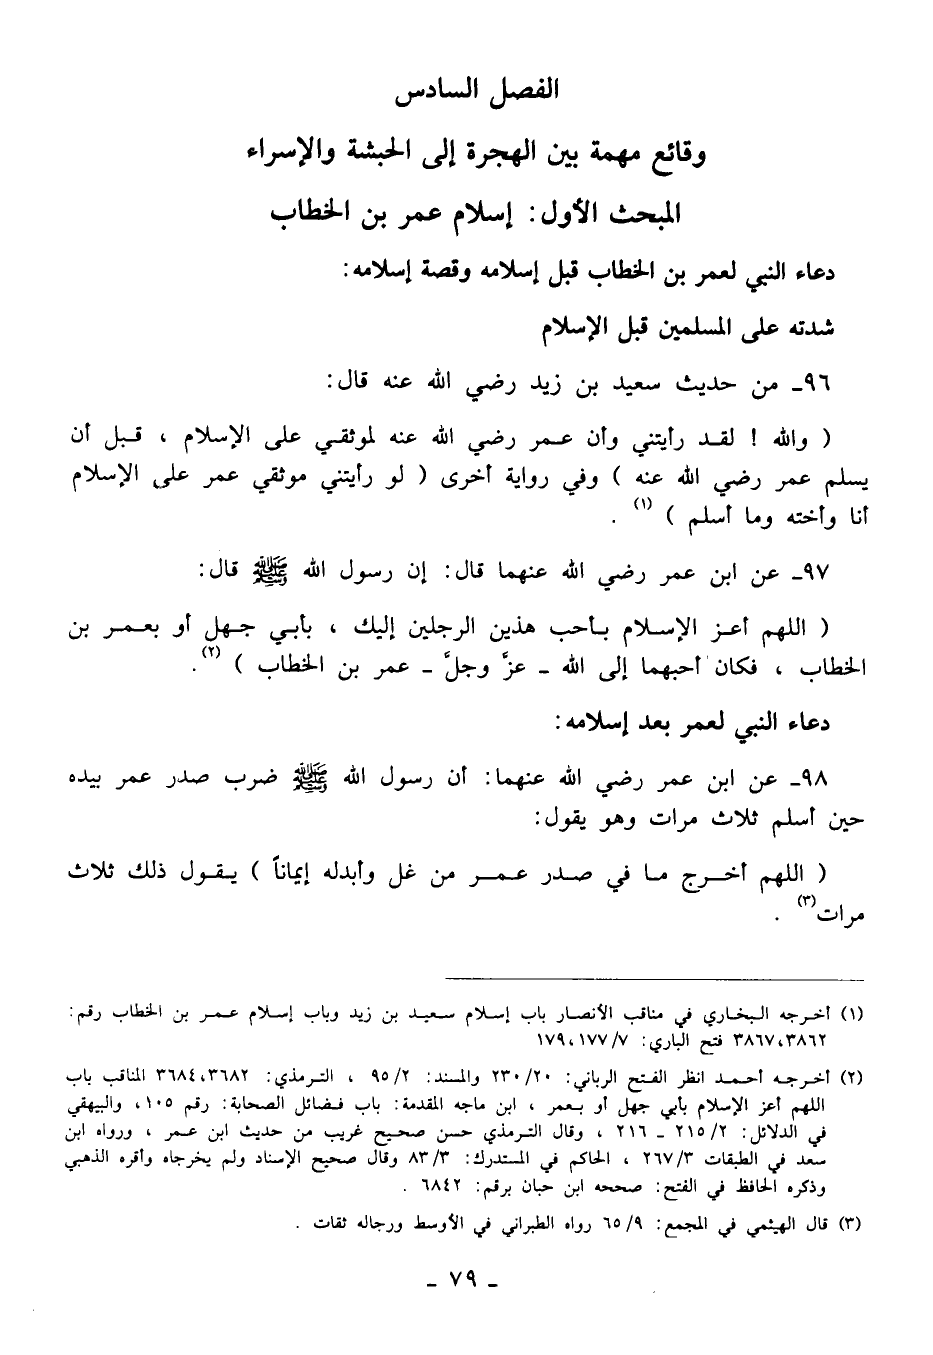 الفصل السادس
وقائع مهمة بين الهجرة إلى الحبشة والإسراء
المبحث الأول: إسلام عمر بن الخطاب
دعاء النبي لعمر بن الخطاب قبل إسلامه وقصة إسلامه:
شدته على المسلمين قبل الإسلام
٩٦ـ من حديث سعيد بن زيد رضي الله عنه قال:
( والله ! لقد رأيتني وأن عمر رضي الله عنه لموثقي على الإسلام ، قبل أن
يسلم عمر رضي الله عنه ) وفي رواية أخرى ( لو رأيتني موثقي عمر على الإسلام
أنا وأخته وما أسلم ) (١) .
٩٧ـ عن ابن عمر رضي الله عنهما قال: إن رسول الله ﷺ قال:
( اللهم أعز الإسلام بأحب هذين الرجلين إليك ، بأبي جهل أو بعمر بن
الخطاب ، فكان أحبهما إلى الله ـ عزَّ وجلَّ ـ عمر بن الخطاب ) (٢).
دعاء النبي لعمر بعد إسلامه:
٩٨ـ عن ابن عمر رضي الله عنهما: أن رسول الله ﷺ ضرب صدر عمر بيده
حين أسلم ثلاث مرات وهو يقول:
( اللهم أخرج ما في صدر عمر من غل وأبدله إيماناً ) يقول ذلك ثلاث
مرات(٣) .
(١) أخرجه البخاري في مناقب الأنصار باب إسلام سعيد بن زيد وباب إسلام عمر بن الخطاب رقم:
٣٨٦٧،٣٨٦٢ فتح الباري: ١٧٩،١٧٧/٧
(٢) أخرجه أحمد انظر الفتح الرباني: ٢٣٠/٢٠ والمسند: ٩٥/٢ ، الترمذي: ٣٦٨٤،٣٦٨٢ المناقب باب
اللهم أعز الإسلام بأبي جهل أو بعمر ، ابن ماجه المقدمة: باب فضائل الصحابة: رقم ١٠٥، والبيهقي
في الدلائل: ٢١٥/٢ ـ ٢١٦ ، وقال الترمذي حسن صحيح غريب من حديث ابن عمر ، ورواه ابن
سعد في الطبقات ٢٦٧/٣ ، الحاكم في المستدرك: ٨٣/٣ وقال صحيح الإسناد ولم يخرجاه وأقره الذهبي
وذكره الحافظ في الفتح: صححه ابن حبان برقم: ٦٨٤٢ .
(٣) قال الهيثمي في المجمع: ٦٥/٩ رواه الطبراني في الأوسط ورجاله ثقات .
ـ ٧٩ ـ